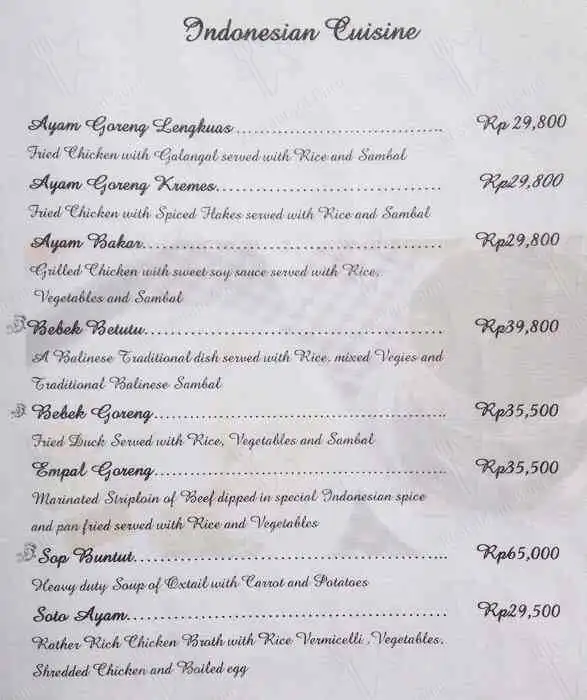 Indonesian Cuisine
Ayam Goreng Lengkuas.................................. Rp 29,800
Fried Chicken with Galangal served with Rice and Sambal
Ayam Goreng Kremes..................................... Rp29,800
Fried Chicken with Spiced Flakes served with Rice and Sambal
Ayam Bakar.................................................. Rp29,800
Grilled Chicken with sweet soy sauce served with Rice,
Vegetables and Sambal
Bebek Betutu.................................................. Rp39,800
A Balinese Traditional dish served with Rice, mixed Vegies and
Traditional Balinese Sambal
Bebek Goreng................................................. Rp35,500
Fried Duck Served with Rice, Vegetables and Sambal
Empal Goreng................................................. Rp35,500
Marinated Striploin of Beef dipped in special Indonesian spice
and pan fried served with Rice and Vegetables
Sop Buntut..................................................... Rp65,000
Heavy duty Soup of Oxtail with Carrot and Potatoes
Soto Ayam...................................................... Rp29,500
Rather Rich Chicken Broth with Rice Vermicelli ,Vegetables,
Shredded Chicken and Boiled egg